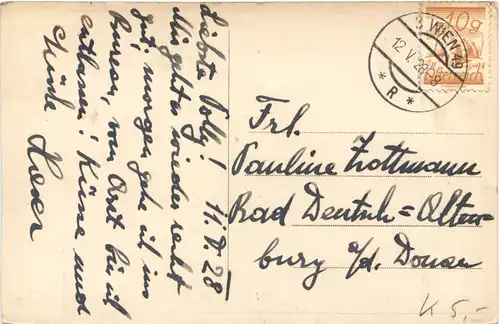 Liebste Polly! 11. V. 28
Mir geht es wieder recht
gut, morgen gehe ich ins
Bureau, vom Arzt bin ich
entlassen! Küsse und
Grüße
3 WIEN 49
12. V. 28 8
* R *
10g
Frl.
Pauline Zottmann
Bad Deutsch=Alten
burg a/d. Donau
K 5,-